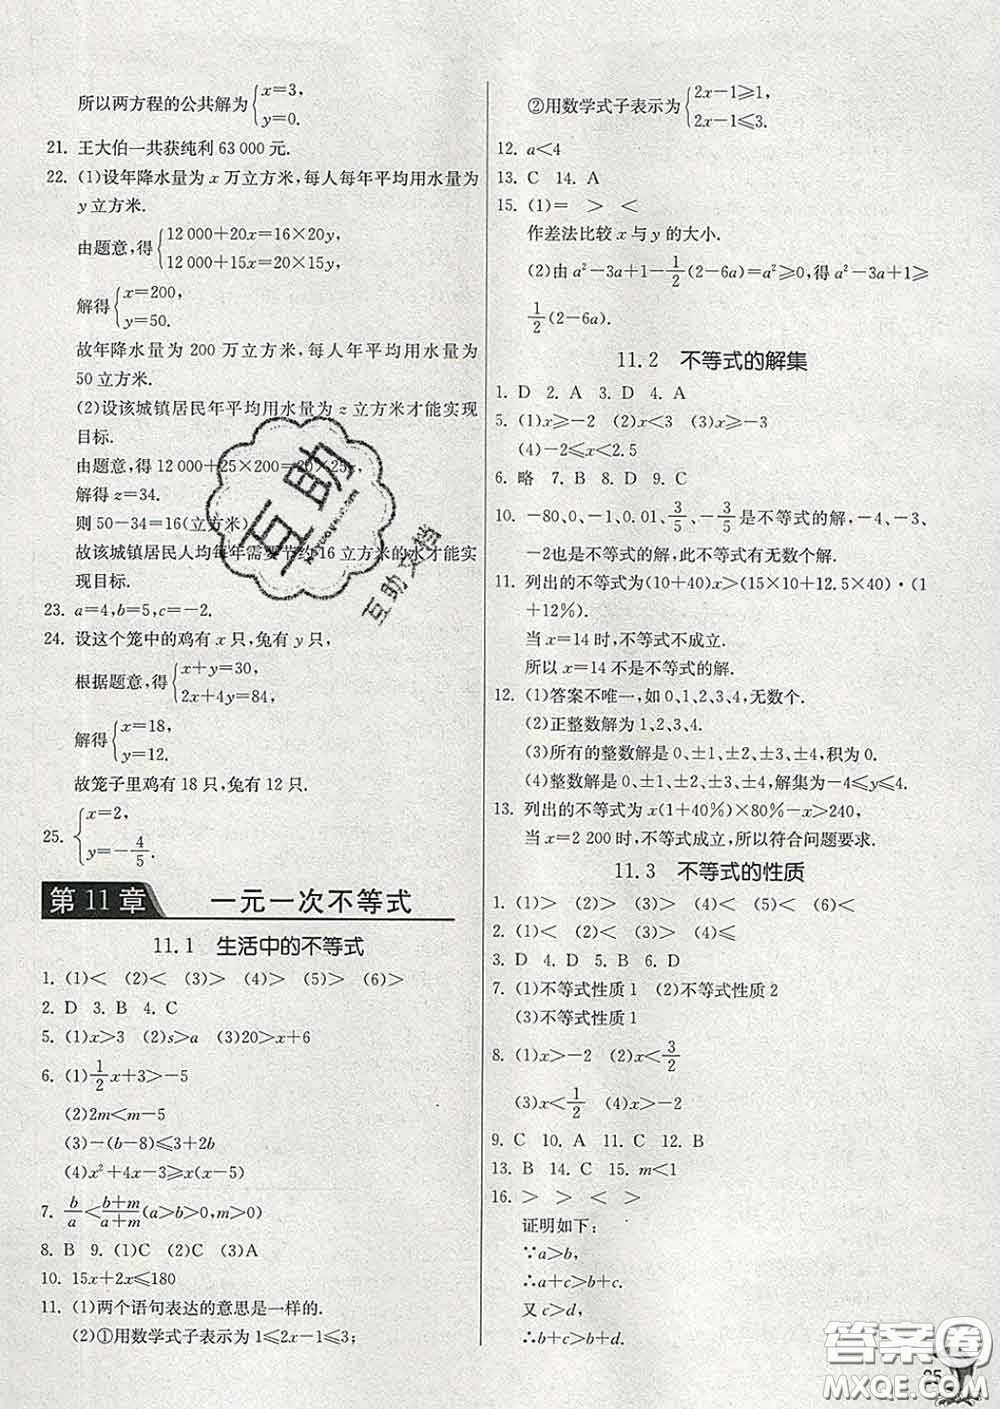 所以两方程的公共解为{x=3,
y=0.
21. 王大伯一共获纯利 63 000 元.
22. (1)设年降水量为 x 万立方米,每人每年平均用水量为
y 立方米.
由题意,得{12 000+20x=16×20y,
12 000+15x=20×15y,
解得{x=200,
y=50.
故年降水量为 200 万立方米,每人年平均用水量为
50 立方米.
(2)设该城镇居民年平均用水量为 z 立方米才能实现
目标.
由题意,得 12 000+25×200=20×25z,
解得 z=34.
则 50-34=16(立方米)
故该城镇居民人均每年需要节约 16 立方米的水才能实现
目标.
23. a=4,b=5,c=-2.
24. 设这个笼中的鸡有 x 只,兔有 y 只,
根据题意,得{x+y=30,
2x+4y=84,
解得{x=18,
y=12.
故笼子里鸡有 18 只,兔有 12 只.
25. {x=2,
y=-4/5.
第 11 章 一元一次不等式
11.1 生活中的不等式
1. (1)< (2)< (3)> (4)> (5)> (6)>
2. D 3. B 4. C
5. (1)x>3 (2)s>a (3)20>x+6
6. (1)1/2x+3>-5
(2)2m<m-5
(3)-(b-8)≤3+2b
(4)x²+4x-3≥x(x-5)
7. b/a<(b+m)/(a+m)(a>b>0,m>0)
8. B 9. (1)C (2)C (3)A
10. 15x+2x≤180
11. (1)两个语句表达的意思是一样的.
(2)①用数学式子表示为 1≤2x-1≤3;
②用数学式子表示为{2x-1≥1,
2x-1≤3.
12. a<4
13. C 14. A
15. (1)= > <
作差法比较 x 与 y 的大小.
(2)由 a²-3a+1-1/2(2-6a)=a²≥0,得 a²-3a+1≥
1/2(2-6a).
11.2 不等式的解集
1. D 2. A 3. D 4. A
5. (1)x≥-2 (2)x<3 (3)x>-2
(4)-2≤x<2.5
6. 略 7. B 8. D 9. C
10. -80、0、-1、0.01、3/5、-3/5是不等式的解,-4、-3、
-2也是不等式的解,此不等式有无数个解.
11. 列出的不等式为(10+40)x>(15×10+12.5×40)·(1
+12%).
当 x=14 时,不等式不成立.
所以 x=14 不是不等式的解.
12. (1)答案不唯一,如 0、1、2、3、4,无数个.
(2)正整数解为 1、2、3、4.
(3)所有的整数解是 0、±1、±2、±3、±4,积为 0.
(4)整数解是 0、±1、±2、±3、±4,解集为-4≤y≤4.
13. 列出的不等式为 x(1+40%)×80%-x>240,
当 x=2 200 时,不等式成立,所以符合问题要求.
11.3 不等式的性质
1. (1)> (2)> (3)> (4)< (5)> (6)>
2. (1)< (2)> (3)> (4)≤
3. D 4. D 5. B 6. D
7. (1)不等式性质 1 (2)不等式性质 2
(3)不等式性质 1
8. (1)x>-2 (2)x<3/2
(3)x<1/2 (4)x>-2
9. C 10. A 11. C 12. B
13. B 14. C 15. m<1
16. > > < >
证明如下:
∵a>b,
∴a+c>b+c.
又 c>d,
∴b+c>b+d.
互助
互助文档
答案圈
MXQE.COM
25